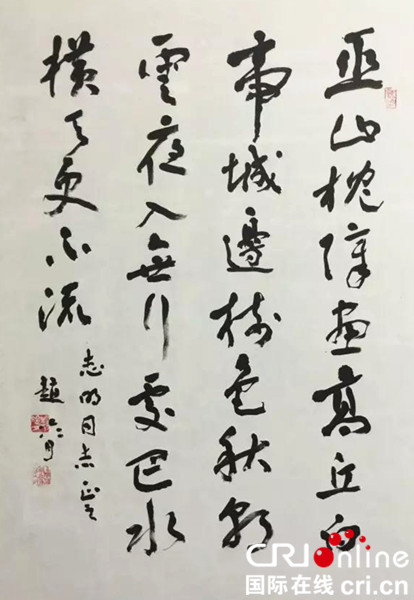 巫山枕障畫高丘白
帝城邊樹色秋朝
雲夜入無行處巴水
橫天更不流
志明同志正之
趙冷月
CRIonline
国际在线 cri.cn